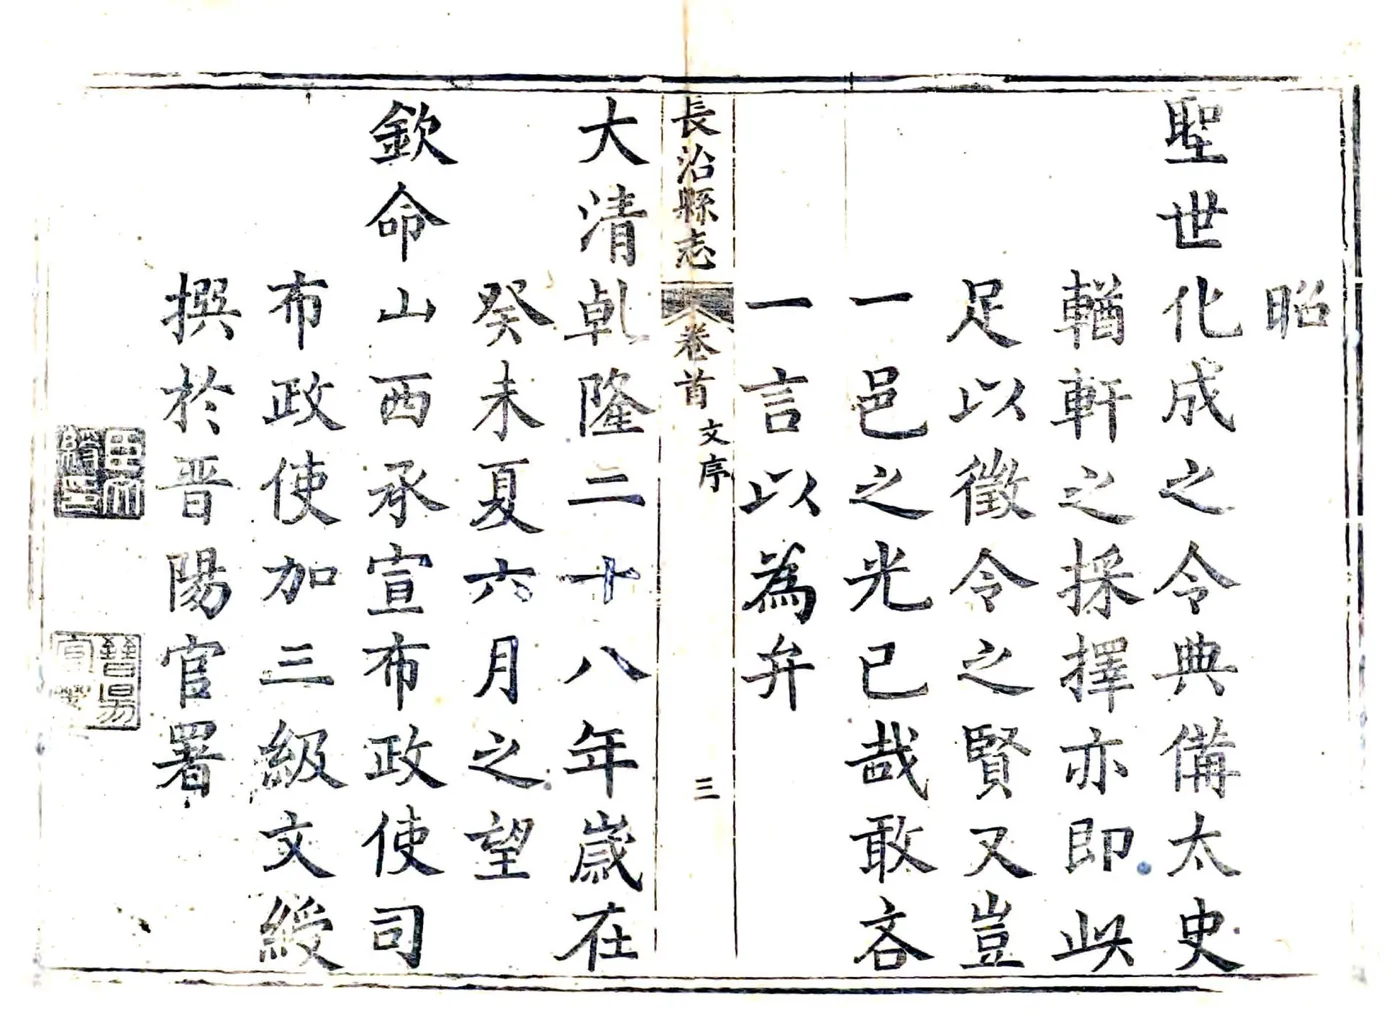 昭
聖世化成之令典備太史
輶軒之採擇亦即此
足以徵令之賢又豈
一邑之光已哉敢吝
一言以為弁
長治縣志 卷首 文序 三
大清乾隆二十八年歲在
癸未夏六月之望
欽命山西承宣布政使司
布政使加三級文綬
撰於晋陽官署